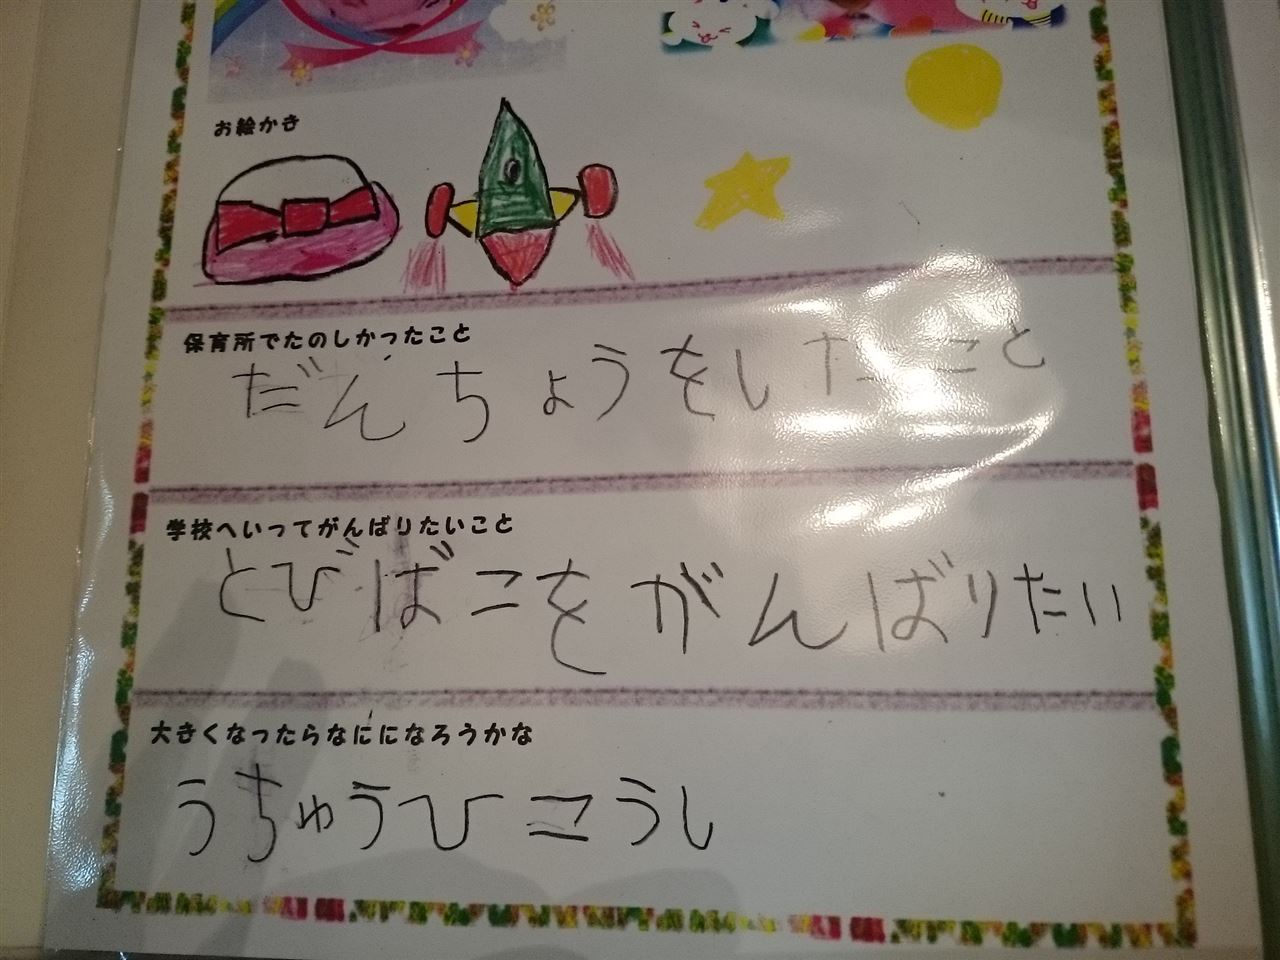 お絵かき
保育所でたのしかったこと
だんちょうをしたこと
学校へいってがんばりたいこと
とびばこをがんばりたい
大きくなったらなにになろうかな
うちゅうひこうし